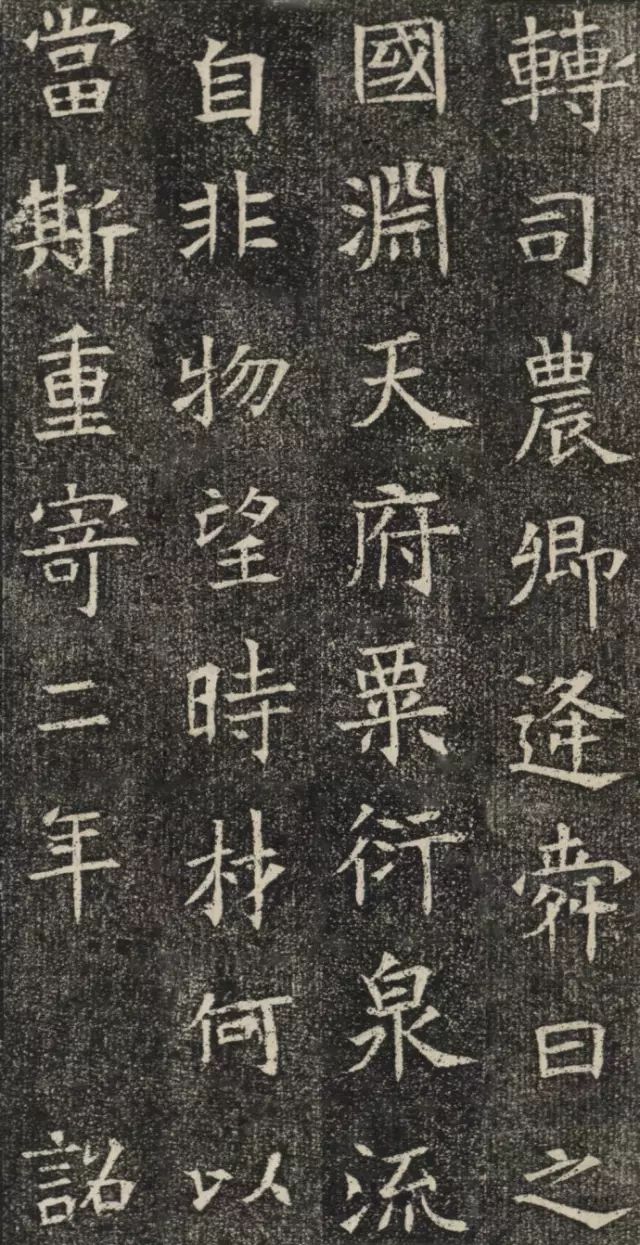 轉司農卿逢舜日之
國淵天府粟衍泉流
自非物望時材何以
當斯重寄二年 詔